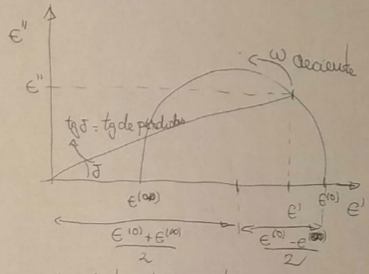 ϵ''
ω creciente
ϵ''
tg δ = tg de pérdidas
δ
ϵ(∞)
ϵ'
ϵ(0)
ϵ'
ϵ(0) + ϵ(∞)
2
ϵ(0) - ϵ(∞)
2